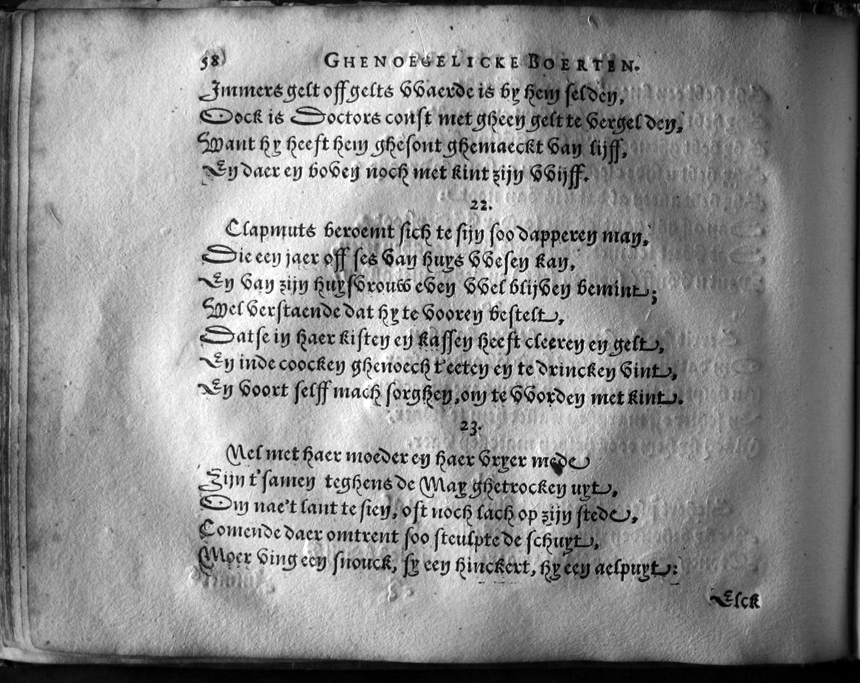 58 GHENOEGELICKE BOERTEN.
Immers gelt off gelts VVaerde is by hem selden,
Oock is Doctors const met gheen gelt te vergelden,
Want hy heeft hem ghesont ghemaeckt van lijff,
En daer en boven noch met kint zijn VVijff.
22.
Clapmuts beroemt sich te sijn soo dapperen man,
Die een jaer off ses van huys VVesen kan,
En van zijn huysvrouw even VVel blijven bemint;
Wel verstaende dat hy te vooren bestelt,
Datse in haer kisten en kassen heeft cleeren en gelt,
En inde coocken ghenoech t'eeten en te drincken vint,
En voort self mach sorghen, om te VVorden met kint.
23.
Nel met haer moeder en haer vryer mede
Zijn t'samen teghens de May ghetrocken uyt,
Om nae't lant te sien, oft noch lach op zijn stede,
Comende daer omtrent soo steulpte de schuyt,
Moer ving een snouck, sy een hinckert, hy een aelpuyt:
Elck